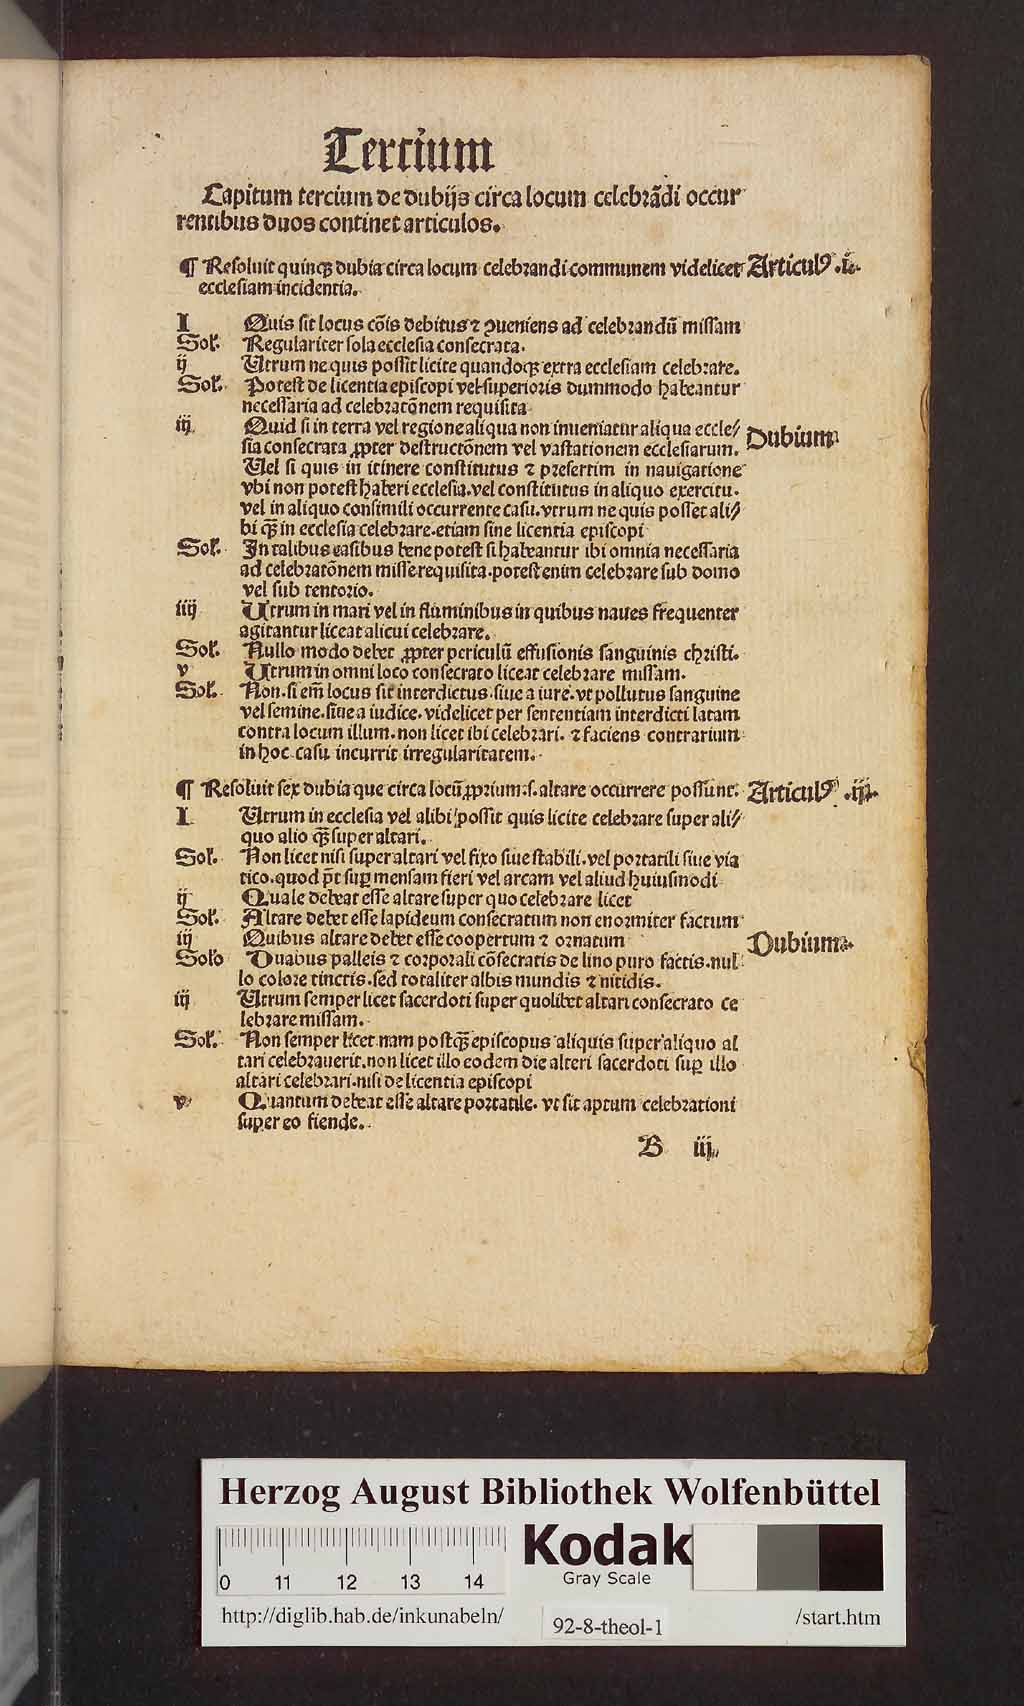 Tercium
Capitum tercium de dubijs circa locum celebrādi occur
rentibus duos continet articulos.
¶ Resoluit quinqꝫ dubia circa locum celebrandi communem videlicet Articulꝰ .i.
ecclesiam incidentia.
I Quis sit locus cōis debitus ⁊ ꝯueniens ad celebrandū missam
Sol. Regulariter sola ecclesia consecrata.
ij Utrum ne quis possit licite quandoqꝫ extra ecclesiam celebrare.
Sol. Potest de licentia episcopi vel superioris dummodo habeantur
necessaria ad celebratōnem requisita
iij Quid si in terra vel regione aliqua non inueniatur aliqua eccle⸗ Dubium
sia consecrata ꝓpter destructōnem vel vastationem ecclesiarum.
Uel si quis in itinere constitutus ⁊ presertim in nauigatione
vbi non potest haberi ecclesia. vel constitutus in aliquo exercitu.
vel in aliquo consimili occurrente casu. vtrum ne quis posset ali⸗
bi qꝫ̄ in ecclesia celebrare. etiam sine licentia episcopi
Sol. In talibus casibus bene potest si habeantur ibi omnia necessaria
ad celebratōnem misse requisita. potest enim celebrare sub domo
vel sub tentorio.
iiij Utrum in mari vel in fluminibus in quibus naues frequenter
agitantur liceat alicui celebrare.
Sol. Nullo modo debet ꝓpter periculū effusionis sanguinis christi.
v Utrum in omni loco consecrato liceat celebrare missam.
Sol. Non. si em̄ locus sit interdictus. siue a iure. vt pollutus sanguine
vel semine. siue a iudice. videlicet per sententiam interdicti latam
contra locum illum. non licet ibi celebrari. ⁊ faciens contrarium
in hoc casu incurrit irregularitatem.
¶ Resoluit sex dubia que circa locū ꝓprium .s. altare occurrere possunt. Articulꝰ .ij.
I Utrum in ecclesia vel alibi possit quis licite celebrare super ali⸗
quo alio qꝫ̄ super altari.
Sol. Non licet nisi super altari vel fixo siue stabili. vel portatili siue via
tico. quod pn̄t suꝑ mensam fieri vel arcam vel aliud huiusmodi
ij Quale debeat esse altare super quo celebrare licet
Sol. Altare debet esse lapideum consecratum non enormiter factum
iij Quibus altare debet esse coopertum ⁊ ornatum Dubium
Solo Duabus palleis ⁊ corporali cōsecratis de lino puro factis. nul
lo colore tinctis. sed totaliter albis mundis ⁊ nitidis.
iiij Utrum semper licet sacerdoti super quolibet altari consecrato ce
lebrare missam.
Sol. Non semper licet nam postqꝫ̄ episcopus aliquis super aliquo al
tari celebrauerit. non licet illo eodem die alteri sacerdoti suꝑ illo
altari celebrari. nisi de licentia episcopi
v Quantum debeat esse altare portatile. vt sit aptum celebrationi
super eo fiende.
B iij
Herzog August Bibliothek Wolfenbüttel
Kodak
Gray Scale
0 11 12 13 14
http://diglib.hab.de/inkunabeln/ 92-8-theol-1 /start.htm